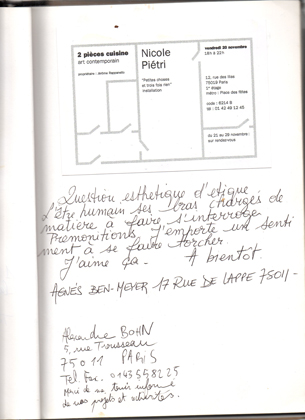 2 pièces cuisine
art contemporain
Nicole
Piétri
"Petites choses
et trois fois rien"
installation
vendredi 20 novembre
18h à 22h
12, rue des lilas
75019 Paris
1° étage
métro : Place des fêtes
code : 6214 B
tél : 01 42 49 12 45
du 21 au 29 novembre :
sur rendez-vous
Question esthétique d'étique
L'être humain ses bras chargés de
matière à faire s'interroge
Premonitions. J'emporte un senti
ment à se faire torcher.
J'aime ça - A bientôt.
AGNÈS BEN-MEYER 17 RUE DE LAPPE 75011 -
Alexandre BOHN
5, rue Trousseau
75011 PARIS
Tel. Fax. 0143558225
Merci de me tenir informé
de vos projets et activités.